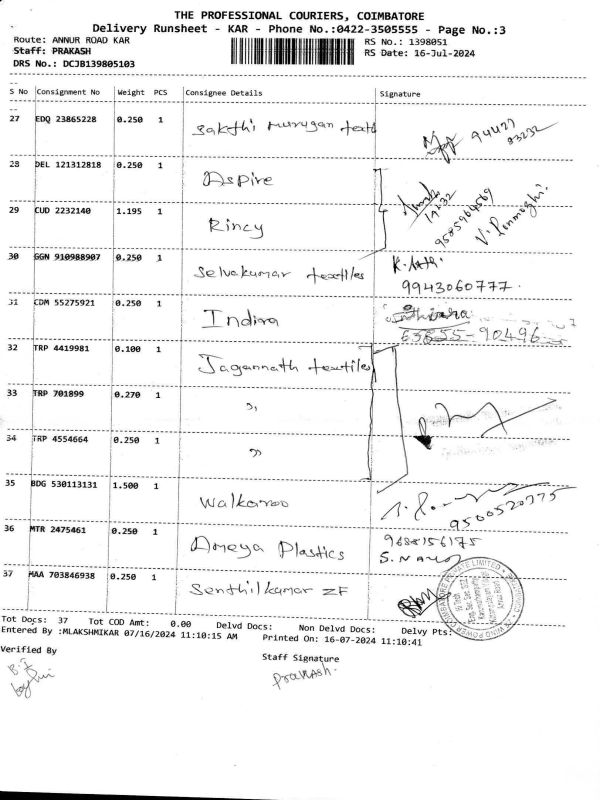 THE PROFESSIONAL COURIERS, COIMBATORE
Delivery Runsheet - KAR - Phone No.:0422-3505555 - Page No.:3
Route: ANNUR ROAD KAR RS No.: 1398051
Staff: PRAKASH RS Date: 16-Jul-2024
DRS No.: DCJB139805103
S No Consignment No Weight PCS Consignee Details Signature
27 EDQ 23865228 0.250 1 Sakthi Murugan text 94427
83232
28 DEL 121312818 0.250 1 Aspire
29 CUD 2232140 1.195 1 Rincy 9585964569 V. Ponmozhi.
30 GGN 910988907 0.250 1 Selvakumar textiles
9943060777.
31 CDM 55275921 0.250 1 Indira
63855-90496
32 TRP 4419981 0.100 1 Jagannath textiles
33 TRP 701899 0.270 1 ,,
34 TRP 4554664 0.250 1 ,,
35 BDG 530113131 1.500 1 Walkaroo
9500520775
36 MTR 2475461 0.250 1 Ameya Plastics 9688156175
37 MAA 703846938 0.250 1 Senthilkumar ZF
Tot Docs: 37 Tot COD Amt: 0.00 Delvd Docs: Non Delvd Docs: Delvy Pts:
Entered By :MLAKSHMIKAR 07/16/2024 11:10:15 AM Printed On: 16-07-2024 11:10:41
Verified By Staff Signature
Prakash.